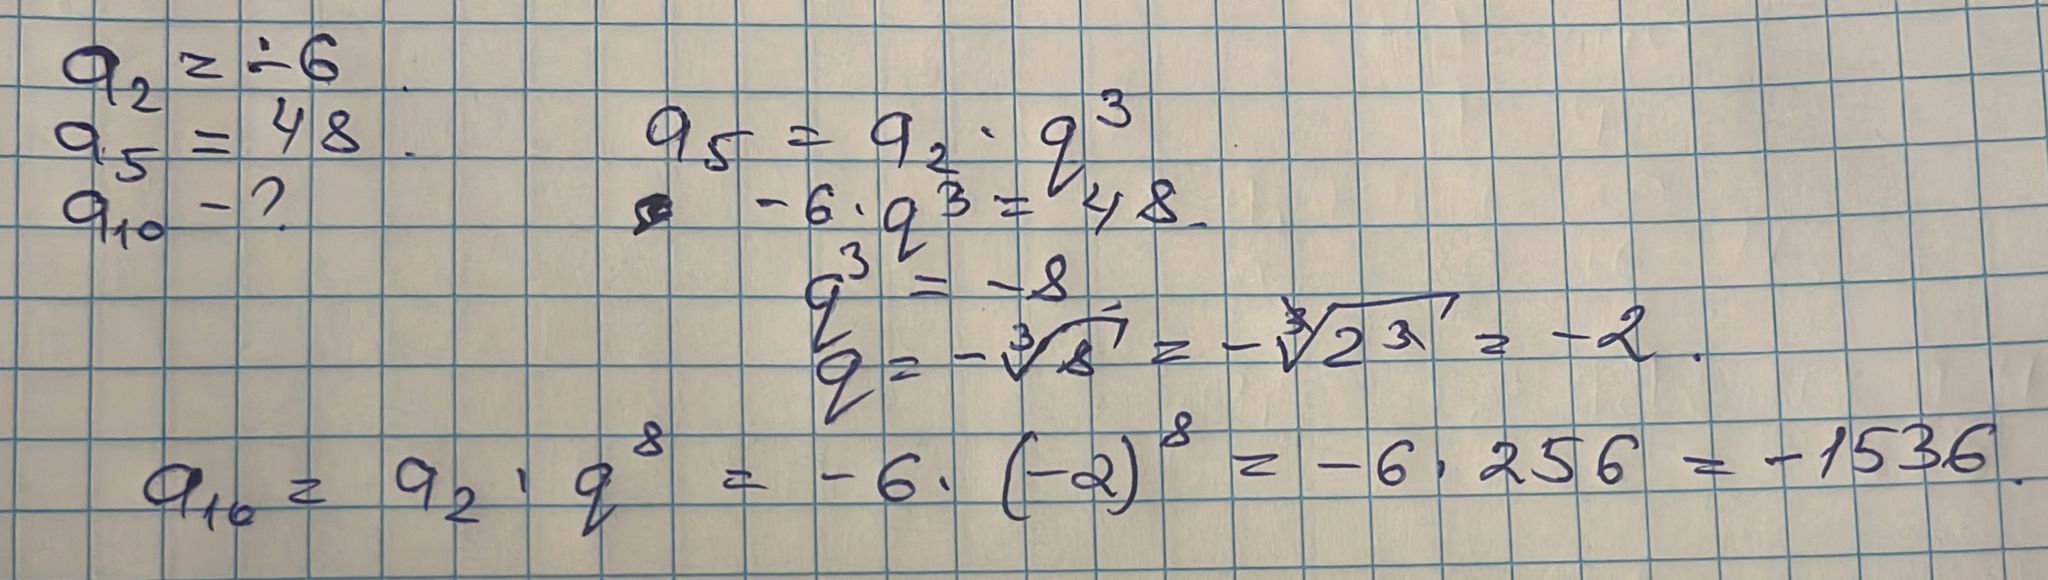 a₂ = -6
a₅ = 48.
a₁₀ - ?
a₅ = a₂ · q³
-6 · q³ = 48.
q³ = -8
q = -∛8 = -∛2³ = -2.
a₁₀ = a₂ · q⁸ = -6 · (-2)⁸ = -6 · 256 = -1536.